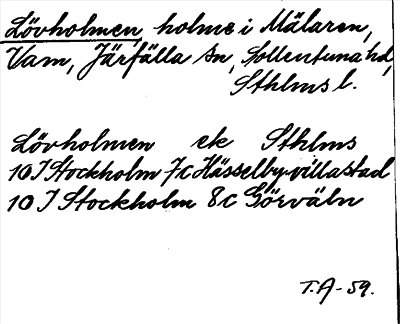 Lövholmen, holme i Mälaren,
Vam, Järfälla sn, Sollentuna hd,
Sthlms l.
Lövholmen ek Sthlms
10 I Stockholm 7c Hässelby villastad
10 I Stockholm 8c Görväln
T.A-59.